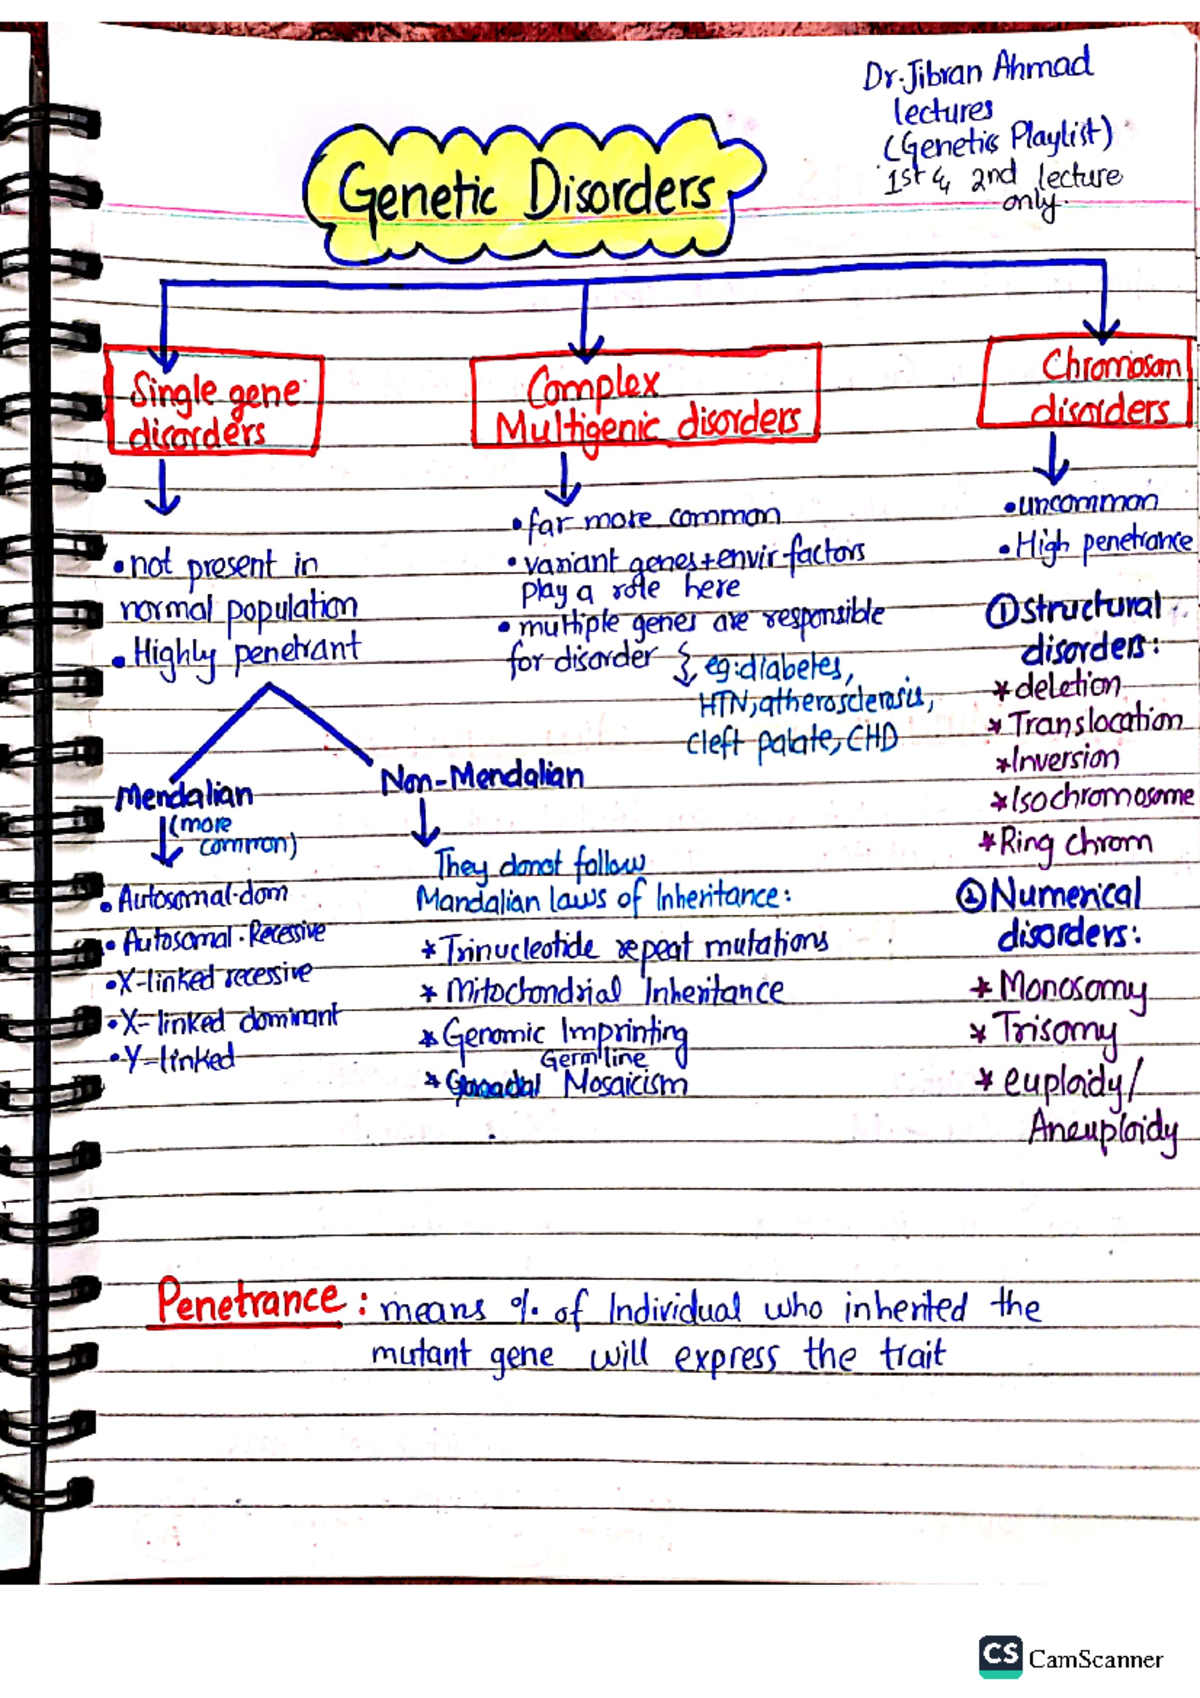 Dr.Jibran Ahmad
lectures
(Genetics Playlist)
1st & 2nd lecture
only.
Genetic Disorders
Single gene
disorders
Complex
Multigenic disorders
Chromosom
disorders
• not present in
normal population
• Highly penetrant
• far more common
• variant genes + envir factors
play a role here
• multiple genes are responsible
for disorder
eg: diabetes,
HTN, atherosclerosis,
cleft palate, CHD
• uncommon
• High penetrance
① structural
disorders:
* deletion
* Translocation
* Inversion
* Isochromosome
* Ring chrom
② Numerical
disorders:
* Monosomy
* Trisomy
* euploidy/
Aneuploidy
Mendalian
(more
common)
• Autosomal.dom
• Autosomal.Recessive
• X-linked recessive
• X-linked dominant
• Y-linked
Non-Mendalian
They donot follow
Mandalian laws of Inheritance:
* Trinucleotide repeat mutations
* Mitochondrial Inheritance
* Genomic Imprinting
Germ line
* Mosaicism
Penetrance: means % of Individual who inherited the
mutant gene will express the trait
CS CamScanner